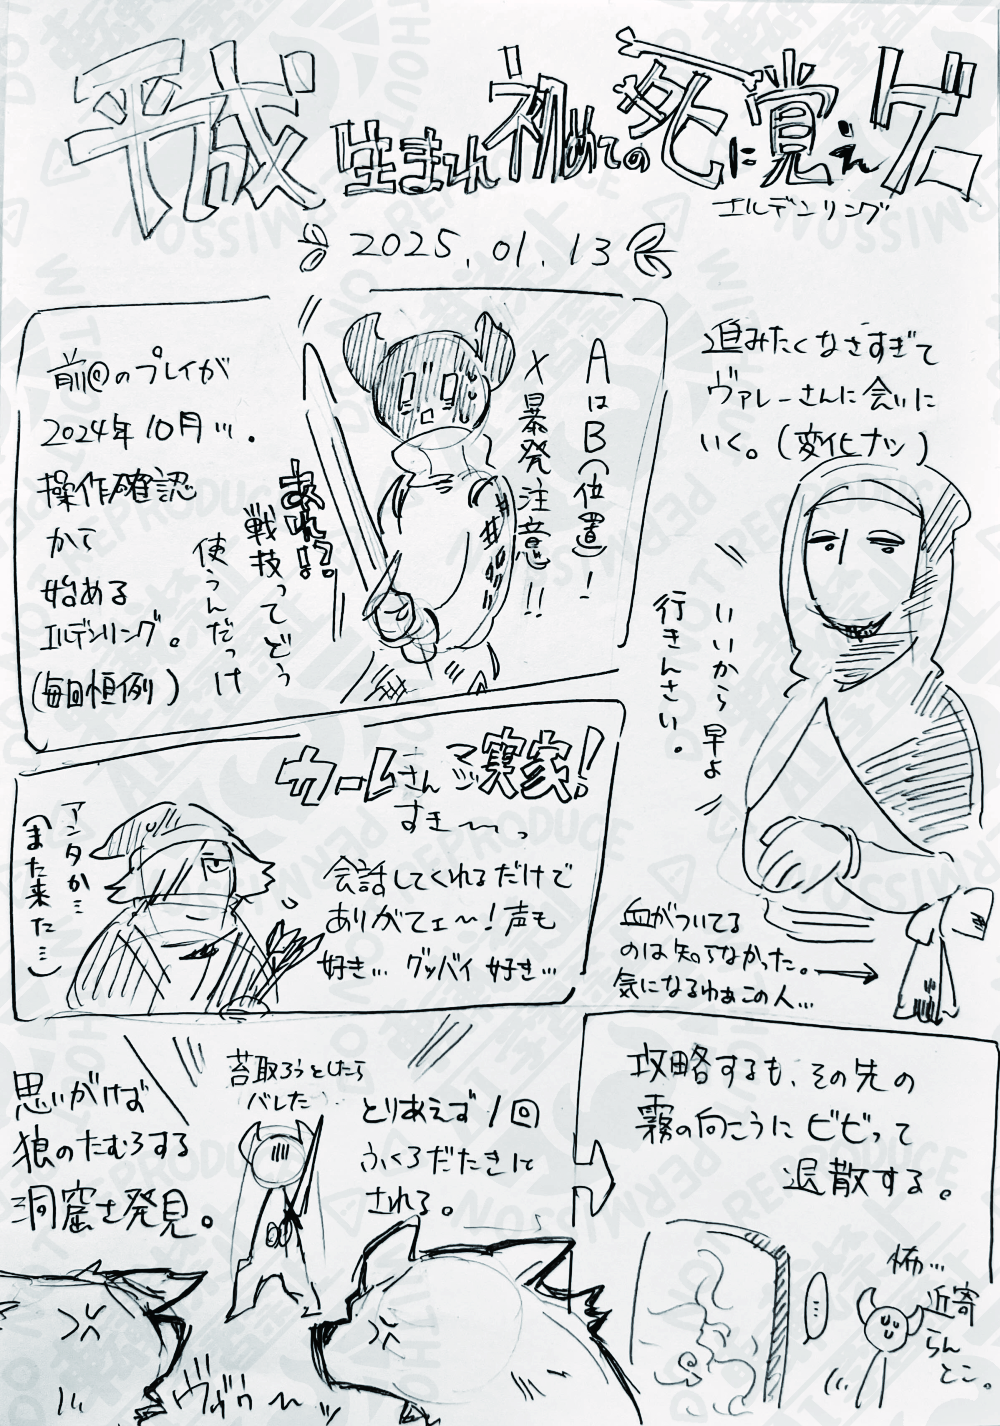 平成生まれ初めての死に覚えゲー
エルデンリング
2025.01.13
前回のプレイが
2024年10月…。
操作確認
から
始める
エルデンリング。
(毎回恒例)
AはB(位置)!
×暴発注意!!
あれ!?
戦技ってどう
使うんだっけ
進みたくなさすぎて
ヴァレーさんに会いに
いく。(変化ナシ)
いいから早よ
行きんさい。
血がついてる
のは知らなかった。
気になるわぁこの人…
カーレさん
マジ実家!
すき〜〜っ
アンタか…
(また来た…)
会話してくれるだけで
ありがてェ〜!声も
好き…グッバイ好き…
思いがけず
狼のたむろする
洞窟を発見。
苔取ろうとしたら
バレた
とりあえず1回
ふくろだたきに
される。
ヴヴゥ〜ッ
攻略するも、その先の
霧の向こうにビビって
退散する。
…
怖…
近寄
らん
とこ。
DO NOT REPRODUCE
WITHOUT PERMISSION
AI学習禁止
無断転載禁止